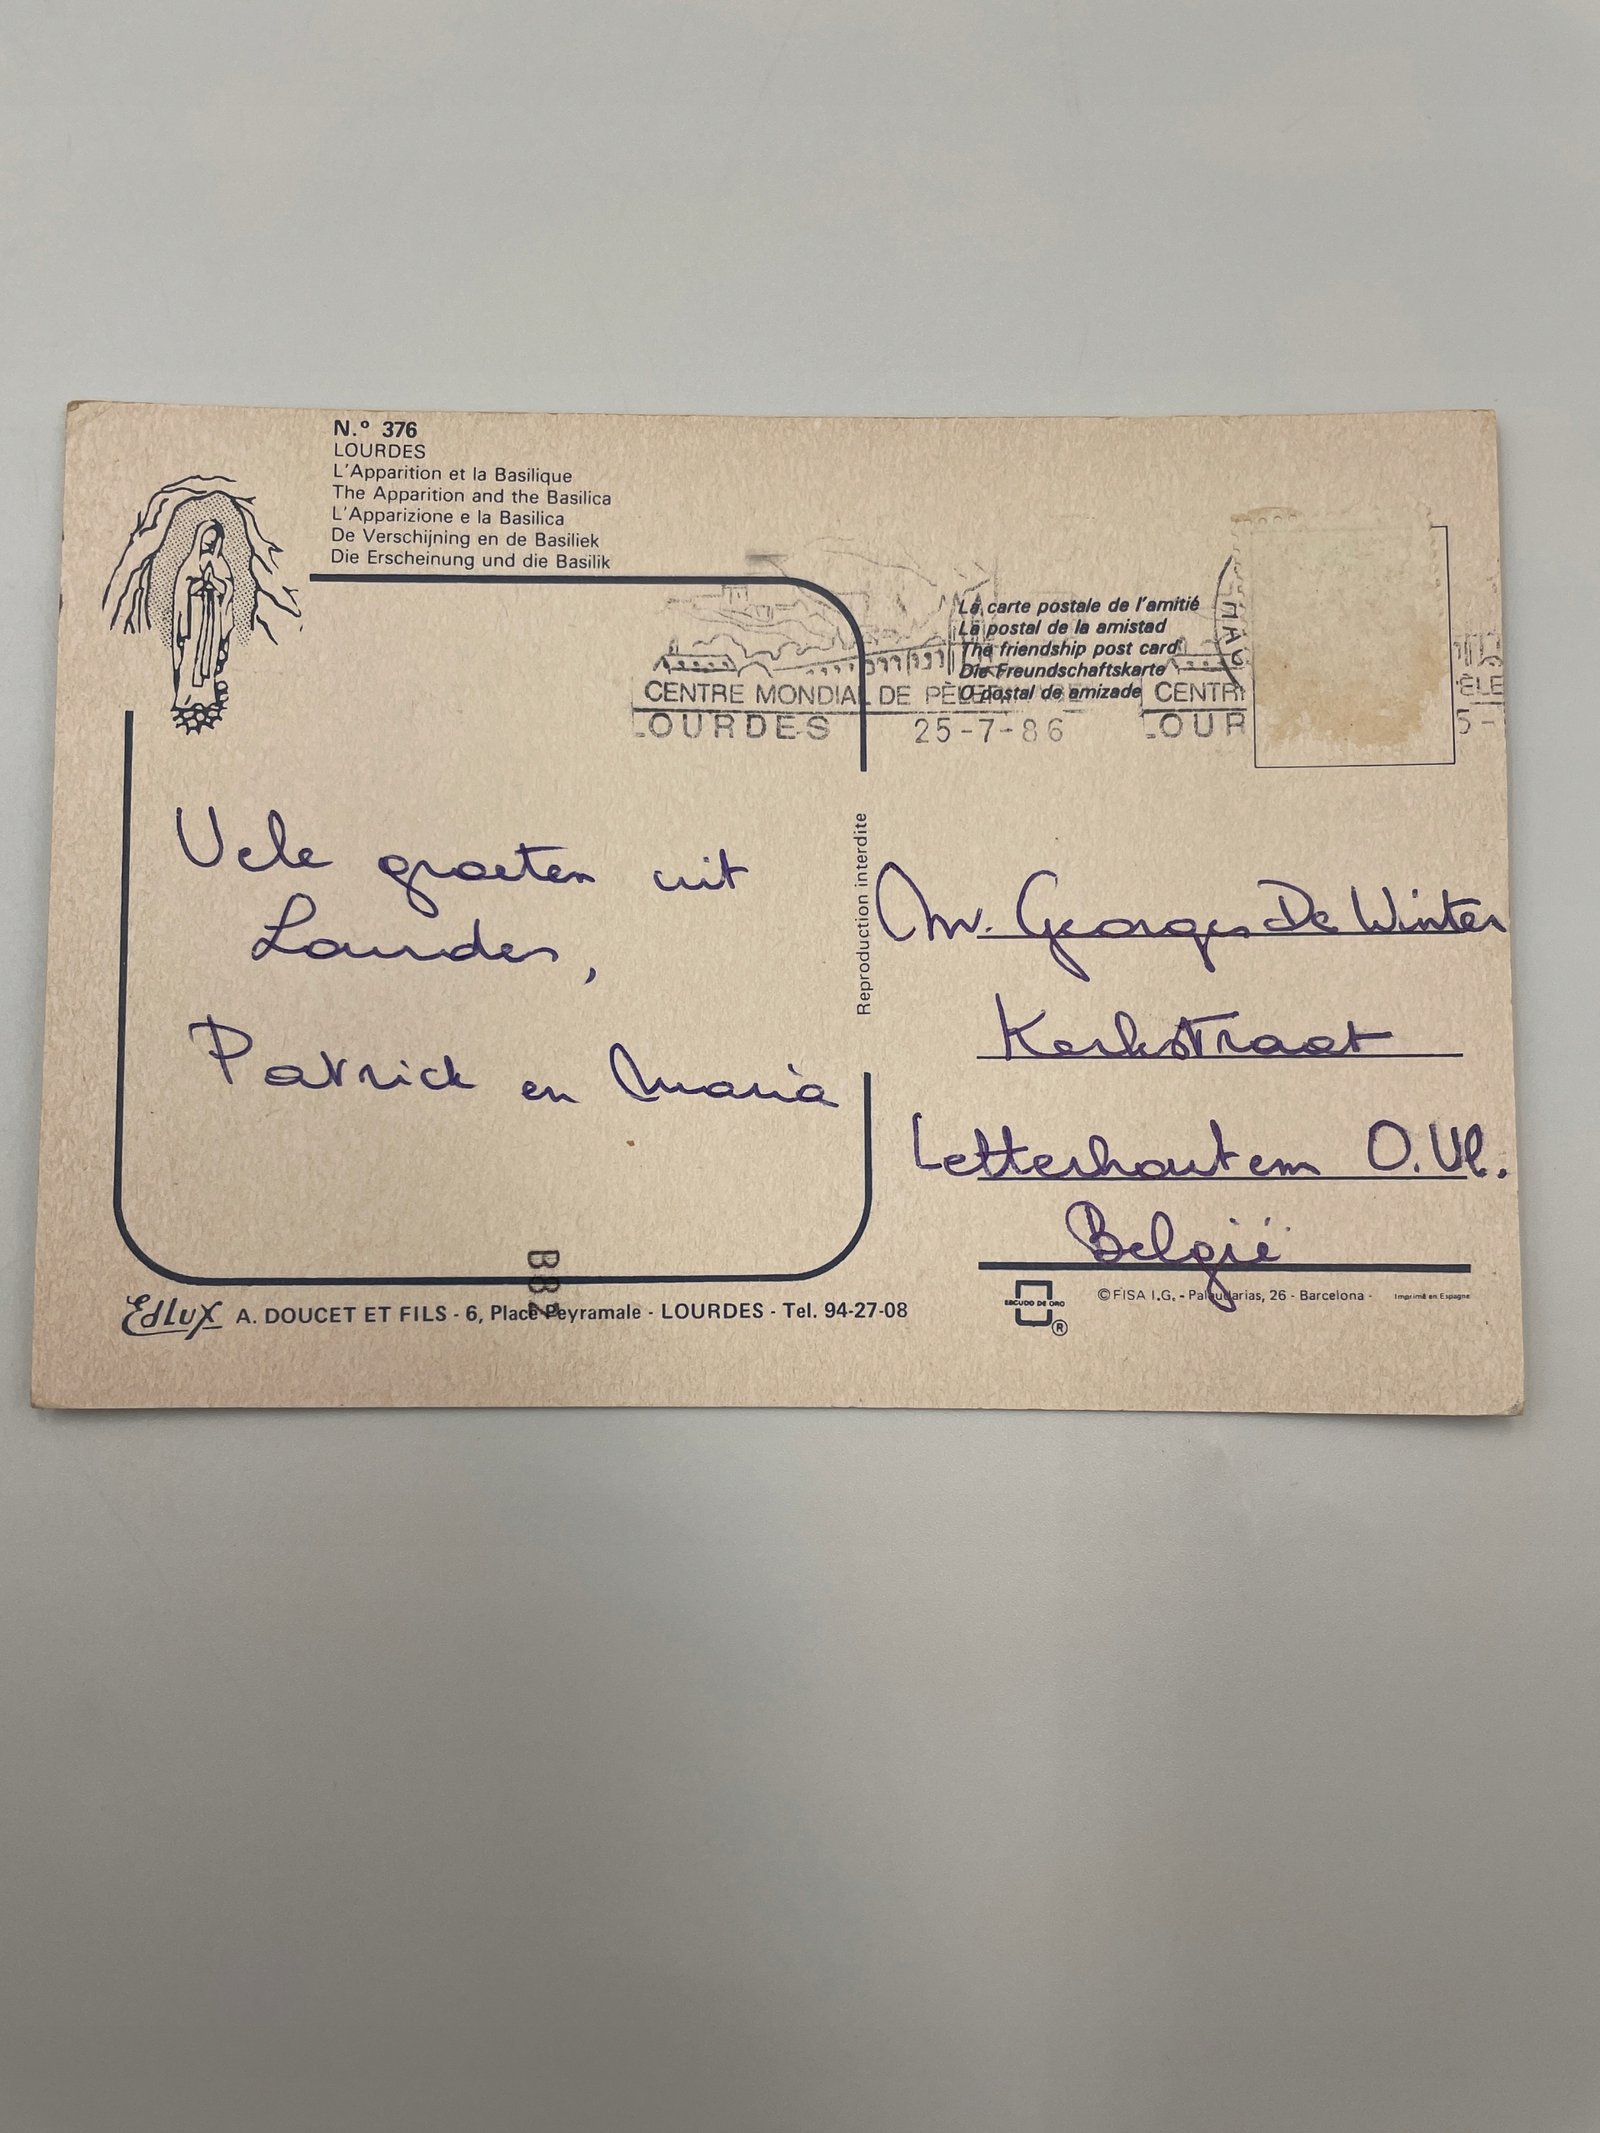 N.º 376
LOURDES
L'Apparition et la Basilique
The Apparition and the Basilica
L'Apparizione e la Basilica
De Verschijning en de Basiliek
Die Erscheinung und die Basilik
La carte postale de l'amitié
La postal de la amistad
The friendship post card
Die Freundschaftskarte
O postal de amizade
CENTRE MONDIAL DE PÈLER
LOURDES 25-7-86
CENTR
LOUR
ÈLE
5-
Vele groeten uit
Lourdes,
Patrick en Maria
Reproduction interdite
Mr. Georges De Winter
Kerkstraat
Letterhoutem O.Vl.
België
B82
EdLux A. DOUCET ET FILS - 6, Place Peyramale - LOURDES - Tel. 94-27-08
ESCUDO DE ORO
®
© FISA I.G. - Palaudarias, 26 - Barcelona - Imprimé en Espagne